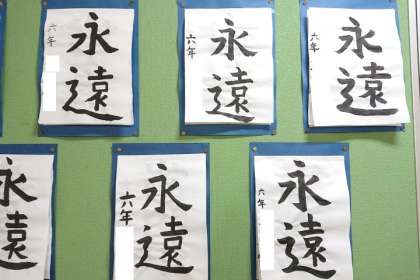 永遠
六年
永遠
六年
永遠
六年
永遠
永遠
六年
永遠
六年